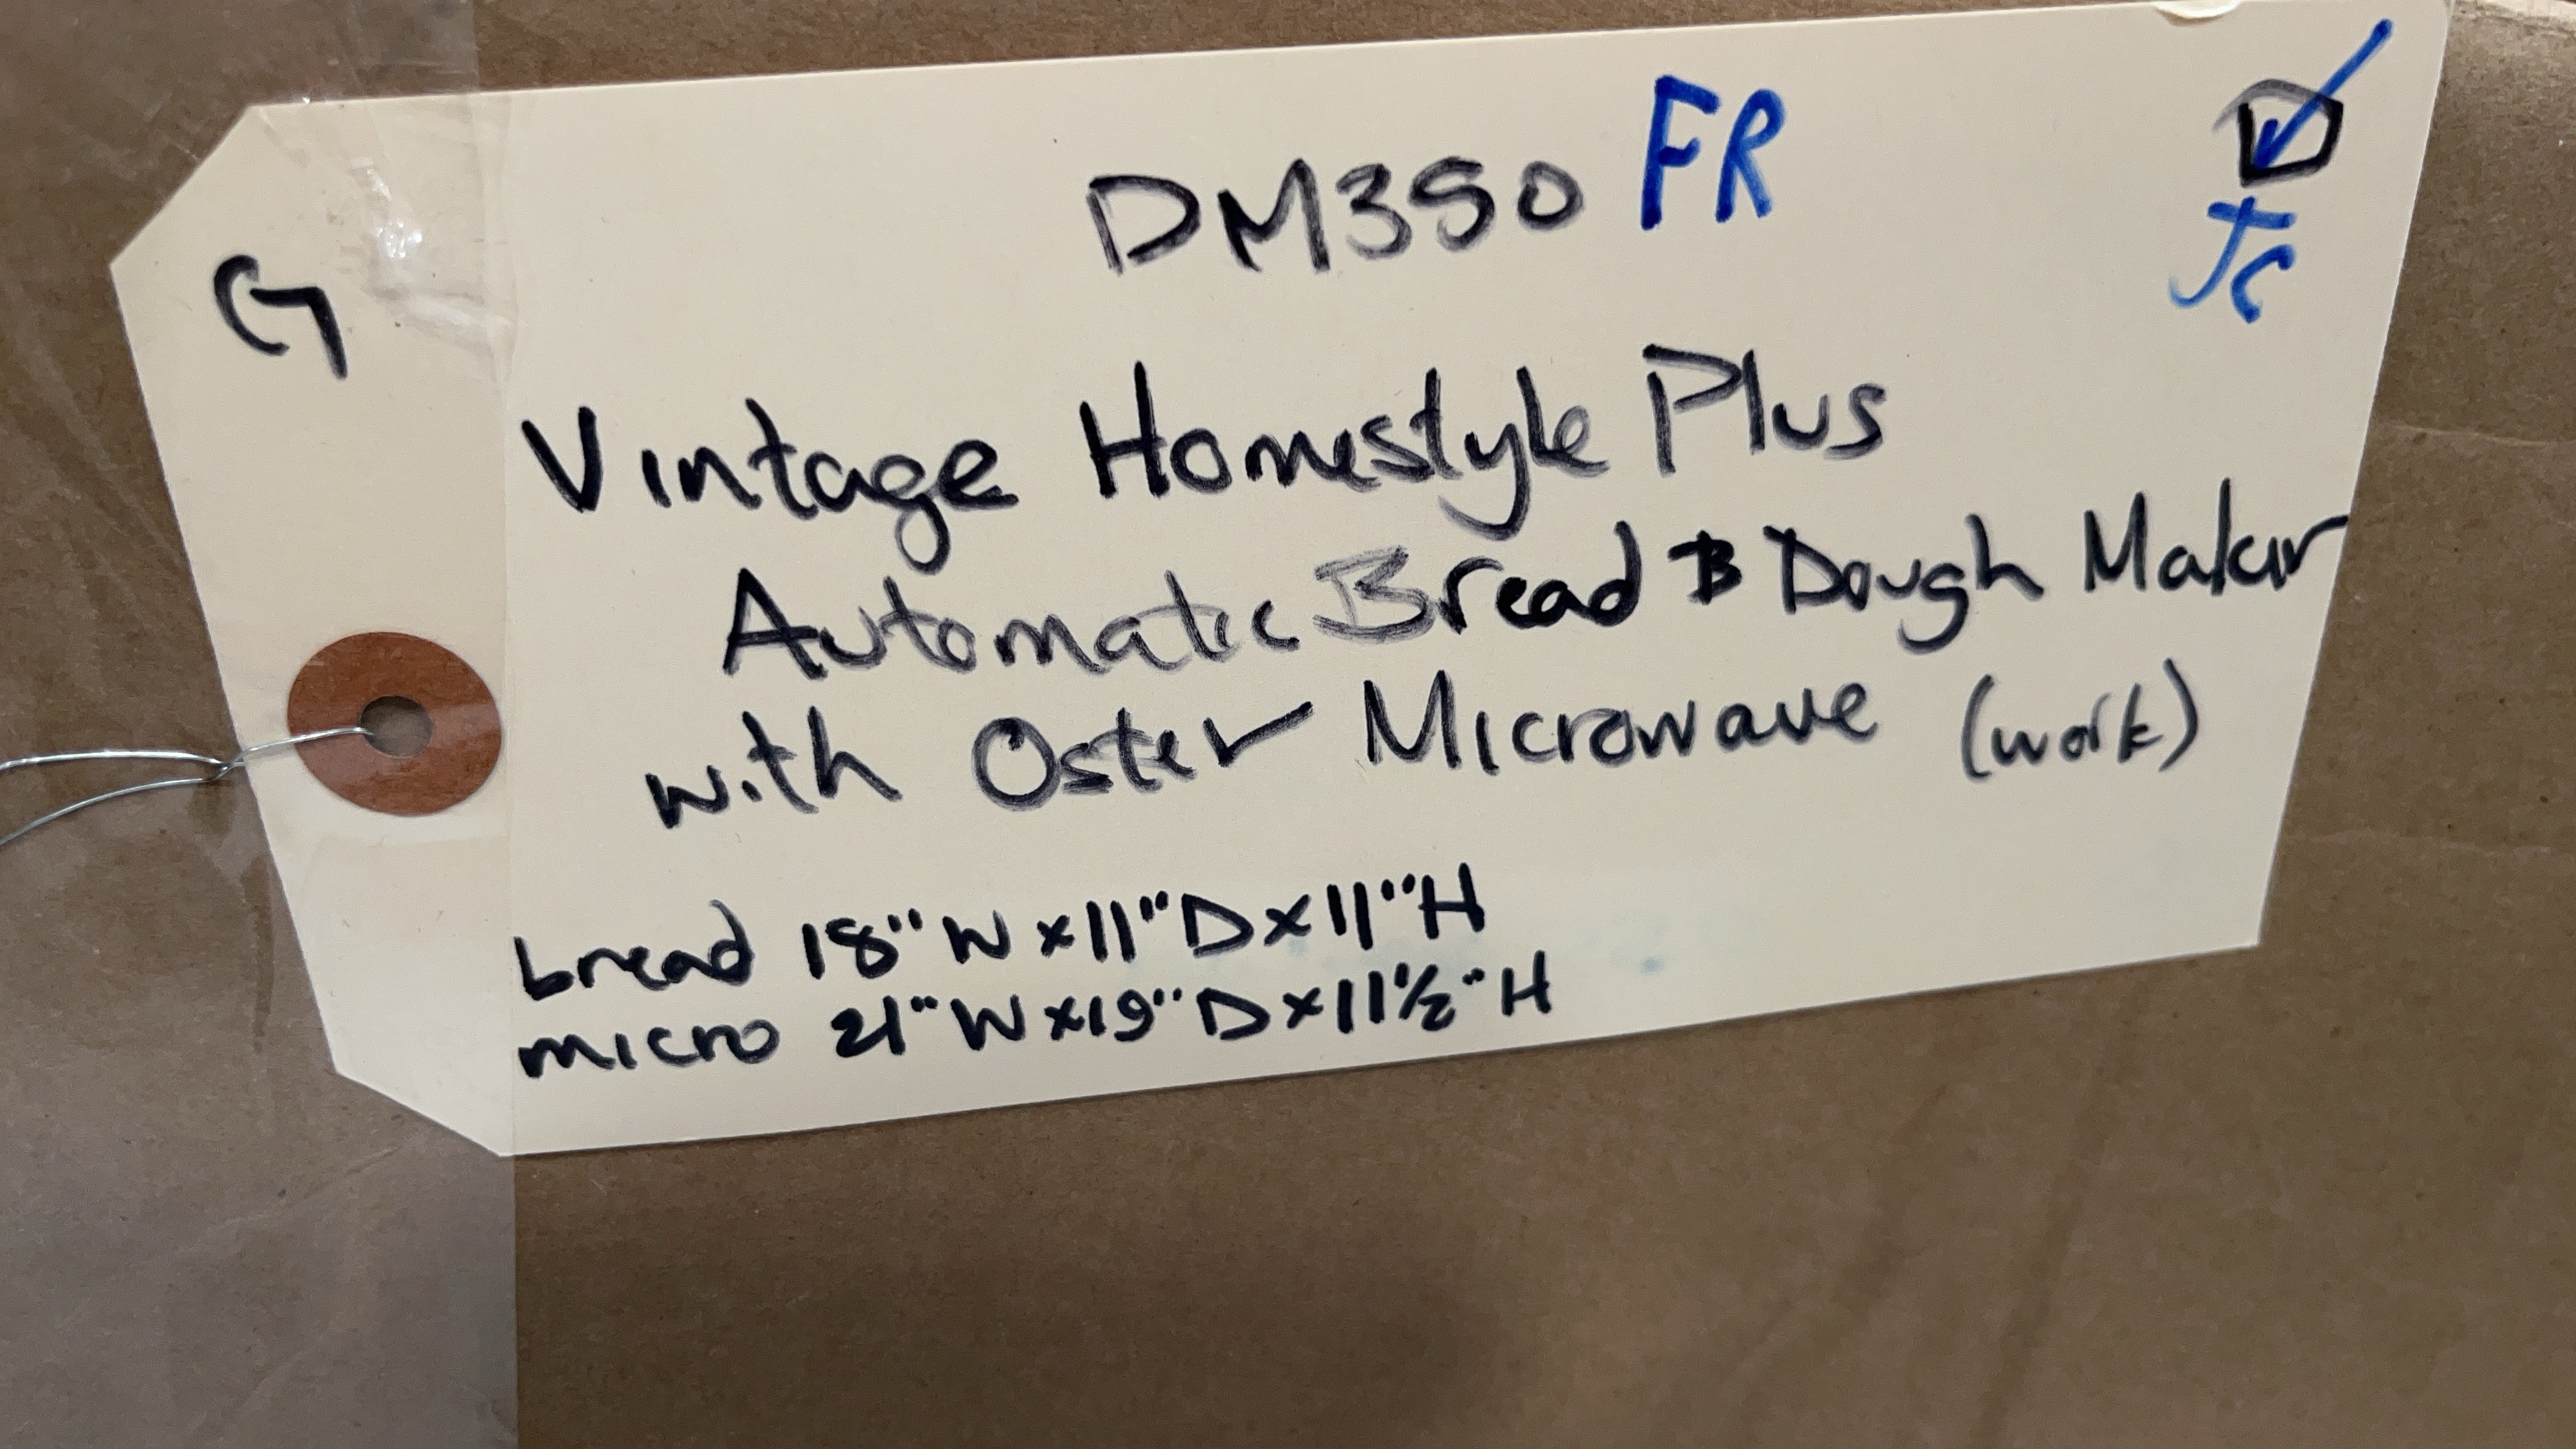 DM350 FR
JC
G
Vintage Homestyle Plus
Automatic Bread & Dough Maker
with Oster Microwave (work)
bread 18" W x 11" D x 11" H
micro 21" W x 19" D x 11 1/2" H